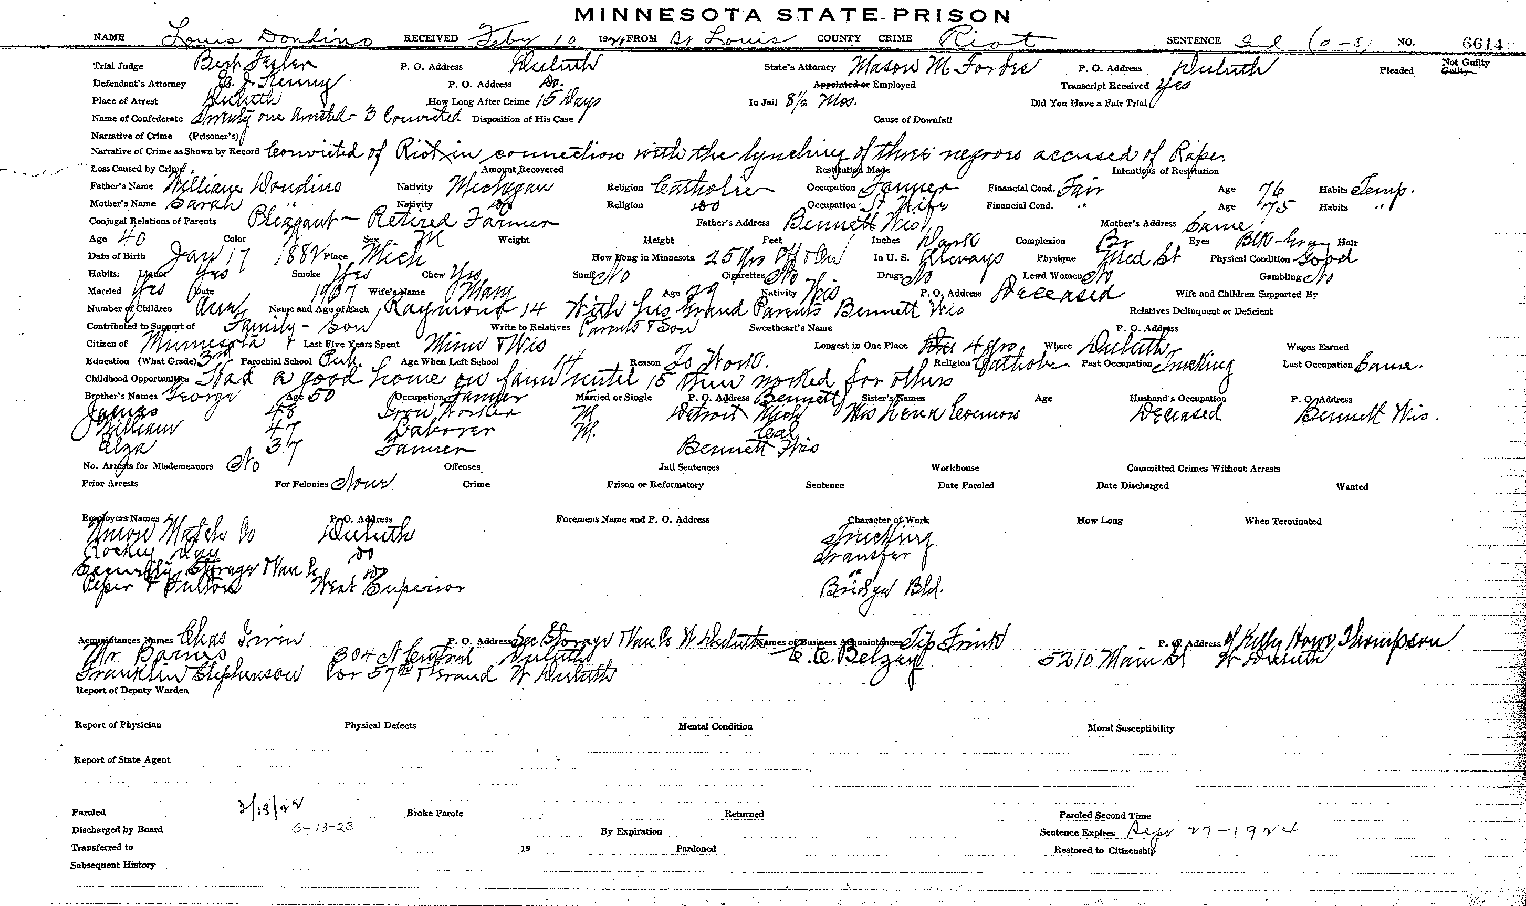 MINNESOTA STATE PRISON
NAME Louis Dondino RECEIVED Feby 10 FROM St Louis COUNTY CRIME Riot SENTENCE (0-5) NO. 6614
Trial Judge Bert Fesler P. O. Address Duluth State's Attorney Mason M. Forbes P. O. Address Duluth Pleaded Not Guilty Guilty
Defendant's Attorney Kenny P. O. Address Do. Appointed or Employed Transcript Received Yes
Place of Arrest Duluth How Long After Crime 15 Days In Jail 8½ Mos. Did You Have a Fair Trial
Name of Confederate Twenty one Arrested - 3 Convicted Disposition of His Case Cause of Downfall
Narrative of Crime (Prisoner's)
Narrative of Crime as Shown by Record Convicted of Riot in connection with the lynching of three negroes accused of Rape.
Loss Caused by Crime Amount Recovered Restitution Made Intentions of Restitution
Father's Name William Dondino Nativity Michigan Religion Catholic Occupation Farmer Financial Cond. Fair Age 76 Habits Temp.
Mother's Name Sarah Nativity Do Religion Do Occupation H Wife Financial Cond. " Age 75 Habits "
Conjugal Relations of Parents Pleasant - Retired Farmer Father's Address Bennett Wis Mother's Address Same
Age 40 Color W Sex M Weight Height Feet Inches Dark Complexion Br Eyes Hair
Date of Birth Jan 17 1882 Place Mich How Long in Minnesota 25 Yrs Off & On In U. S. Always Physique Med St Physical Condition Good
Habits: Liquor Yes Smoke Yes Chew Yes Snuff No Cigarettes No Drugs No Lewd Women No Gambling No
Married Yes Date 1907 Wife's Name Mary Age 29 Nativity Wis P. O. Address Deceased Wife and Children Supported By
Number of Children One Name and Age of Each Raymond 14 With his Grand Parents Bennett Wis Relatives Delinquent or Deficient
Contributed to Support of Family - Son Write to Relatives Parents & Son Sweetheart's Name P. O. Address
Citizen of Minnesota Last Five Years Spent Minn & Wis Longest in One Place 4 Yrs Where Duluth Wages Earned
Education (What Grade) 3rd Parochial School Pub. Age When Left School 14 Reason To Work. Religion Catholic Past Occupation Trucking Last Occupation Same.
Childhood Opportunities Had a good home on farm until 15 then worked for others
Brother's Names George Age 50 Occupation Farmer Married or Single P. O. Address Bennett Sister's Names Age Husband's Occupation P. O. Address
James 48 Iron Worker M Detroit Mich Mrs Deceased Bennett Wis.
William 47 Laborer M. Cal
Elza 37 Farmer Bennett Wis
No. Arrests for Misdemeanors No Offenses Jail Sentences Workhouse Committed Crimes Without Arrests
Prior Arrests For Felonies None Crime Prison or Reformatory Sentence Date Paroled Date Discharged Wanted
Employers Names P. O. Address Foremens Name and P. O. Address Character of Work How Long When Terminated
Union Match Co Duluth Trucking
Do Transfer
Security Storage & Van Co Do "
Peper & Fulton West Superior Bridge Bld.
Acquaintances Names Chas Irwin P. O. Address Sec Storage & Van Co W Duluth Names of Business Acquaintances Tip Frink P. O. Address of Kelly How Thompson
Mr Barnes 304 N Central Duluth E. E. Belzey 5210 Main St W Duluth
Franklin Stephenson Cor 57th & Grand W Duluth
Report of Deputy Warden
Report of Physician Physical Defects Mental Condition Moral Susceptibility
Report of State Agent
Paroled 3/13/22 Broke Parole Returned Paroled Second Time
Discharged by Board 6-13-23 By Expiration Sentence Expires Sept 27-1924
Transferred to 19 Pardoned Restored to Citizenship
Subsequent History